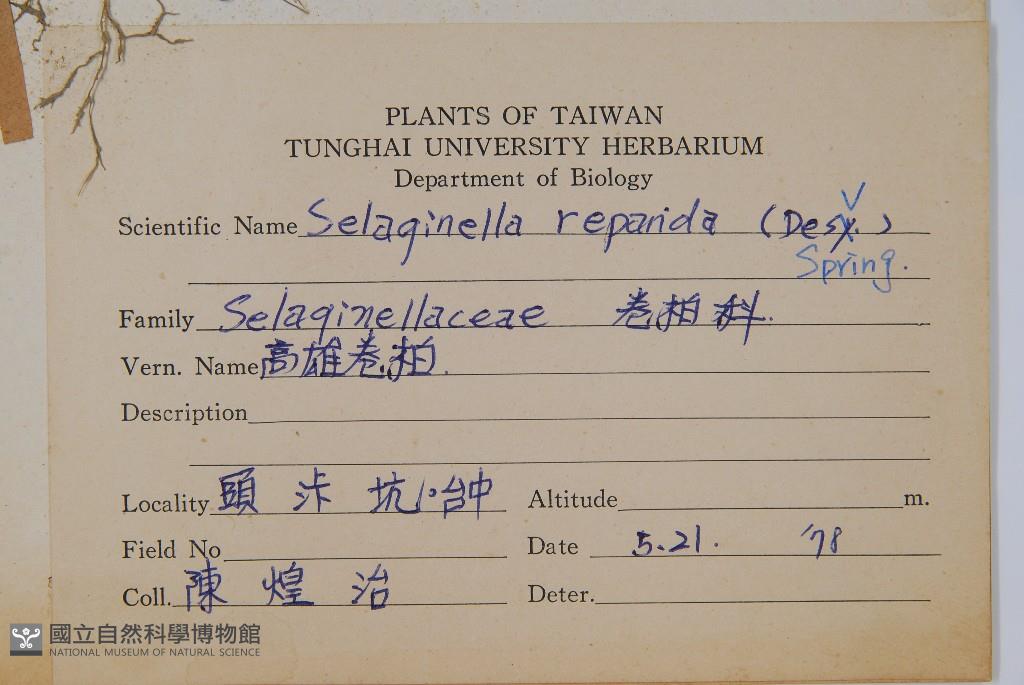 PLANTS OF TAIWAN
TUNGHAI UNIVERSITY HERBARIUM
Department of Biology
Scientific Name Selaginella repanda (Desv.)
Spring.
Family Selaginellaceae 卷柏科.
Vern. Name 高雄卷柏.
Description
Locality 頭汴坑,台中 Altitude m.
Field No Date 5.21. '78
Coll. 陳煌治 Deter.
國立自然科學博物館
NATIONAL MUSEUM OF NATURAL SCIENCE